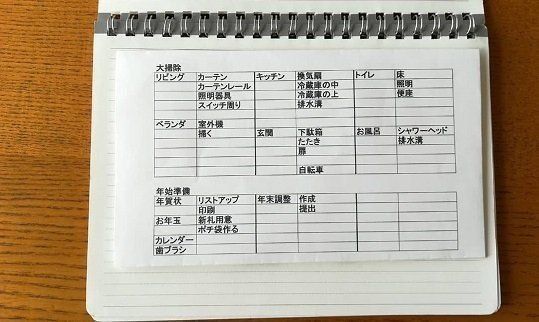 大掃除
リビング カーテン キッチン 換気扇 トイレ 床
カーテンレール 冷蔵庫の中 照明
照明器具 冷蔵庫の上 便座
スイッチ周り 排水溝
ベランダ 室外機
掃く 玄関 下駄箱 お風呂 シャワーヘッド
たたき 排水溝
扉
自転車
年始準備
年賀状 リストアップ 年末調整 作成
印刷 提出
お年玉 新札用意
ポチ袋作る
カレンダー
歯ブラシ